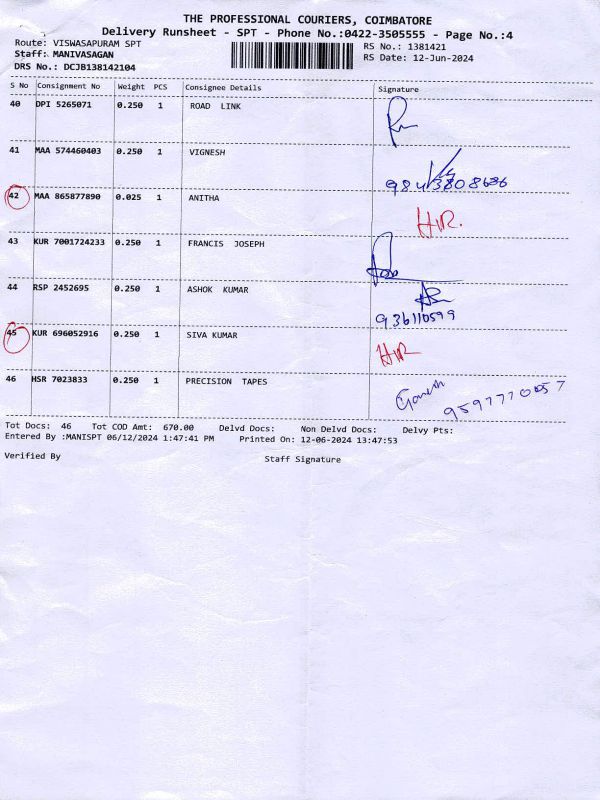 THE PROFESSIONAL COURIERS, COIMBATORE
Delivery Runsheet - SPT - Phone No.:0422-3505555 - Page No.:4
Route: VISWASAPURAM SPT RS No.: 1381421
Staff: MANIVASAGAN RS Date: 12-Jun-2024
DRS No.: DCJB138142104
S No Consignment No Weight PCS Consignee Details Signature
40 DPI 5265071 0.250 1 ROAD LINK
41 MAA 574460403 0.250 1 VIGNESH
42 MAA 865877890 0.025 1 ANITHA
H.R.
43 KUR 7001724233 0.250 1 FRANCIS JOSEPH
44 RSP 2452695 0.250 1 ASHOK KUMAR
936110599
45 KUR 696052916 0.250 1 SIVA KUMAR
HR
46 HSR 7023833 0.250 1 PRECISION TAPES
Ganesh
Tot Docs: 46 Tot COD Amt: 670.00 Delvd Docs: Non Delvd Docs: Delvy Pts:
Entered By :MANISPT 06/12/2024 1:47:41 PM Printed On: 12-06-2024 13:47:53
Verified By Staff Signature